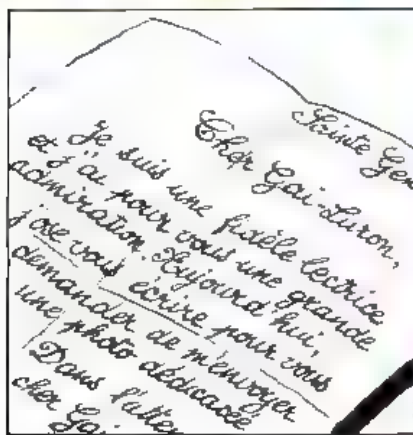 Sainte Gen
Cher Gai-Luron,
Je suis une fidèle lectrice
et j'ai pour vous une grande
admiration. Aujourd'hui,
j'ose vous écrire pour vous
demander de m'envoyer
une photo dédicacée
Dans l'atten
cher Gai